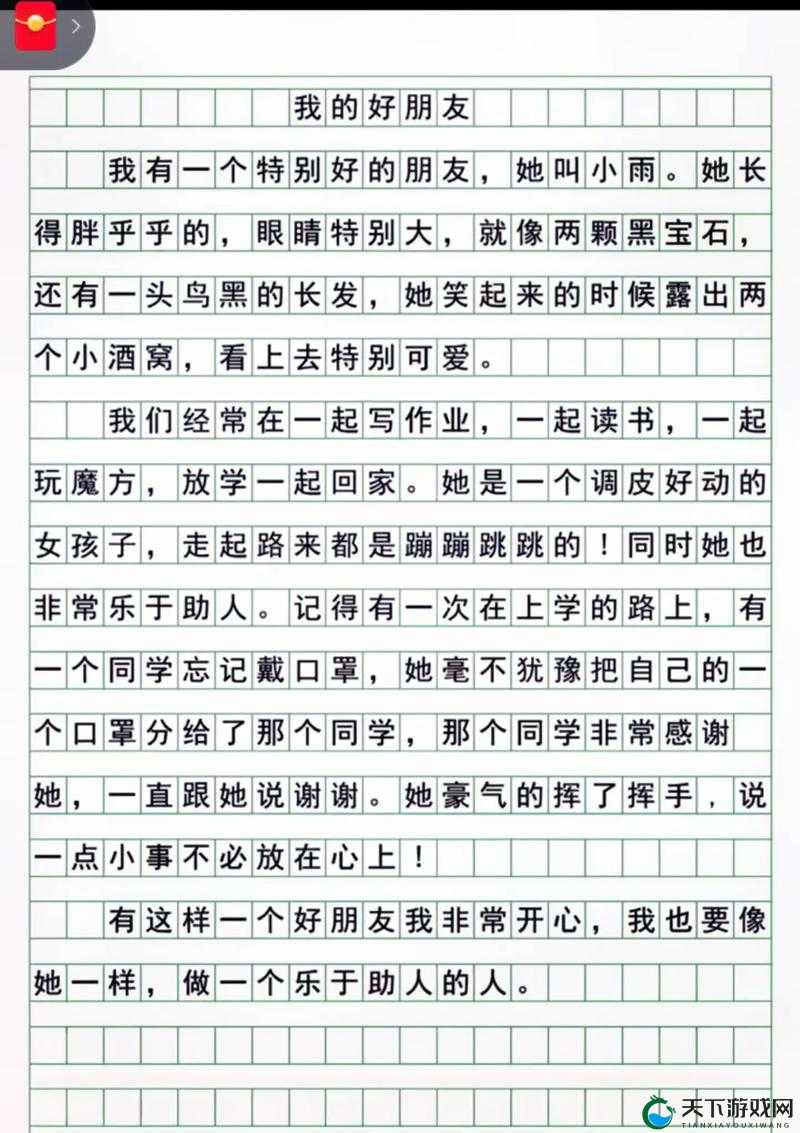 我的好朋友
我有一个特别好的朋友，她叫小雨。她长
得胖乎乎的，眼睛特别大，就像两颗黑宝石，
还有一头鸟黑的长发，她笑起来的时候露出两
个小酒窝，看上去特别可爱。
我们经常在一起写作业，一起读书，一起
玩魔方，放学一起回家。她是一个调皮好动的
女孩子，走起路来都是蹦蹦跳跳的！同时她也
非常乐于助人。记得有一次在上学的路上，有
一个同学忘记戴口罩，她毫不犹豫把自己的一
个口罩分给了那个同学，那个同学非常感谢
她，一直跟她说谢谢。她豪气的挥了挥手，说
一点小事不必放在心上！
有这样一个好朋友我非常开心，我也要像
她一样，做一个乐于助人的人。
天下游戏网
TIANXIAYOUXIWANG